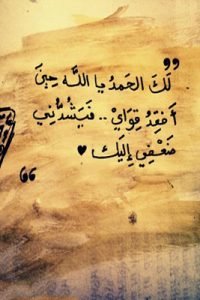 ” لَكَ الحَمدُ يا اللَّه حِينَ
أفقِدُ قِوَايْ .. فَيَشُدُّنِي
ضَعْفِي إِليَك ♥ “